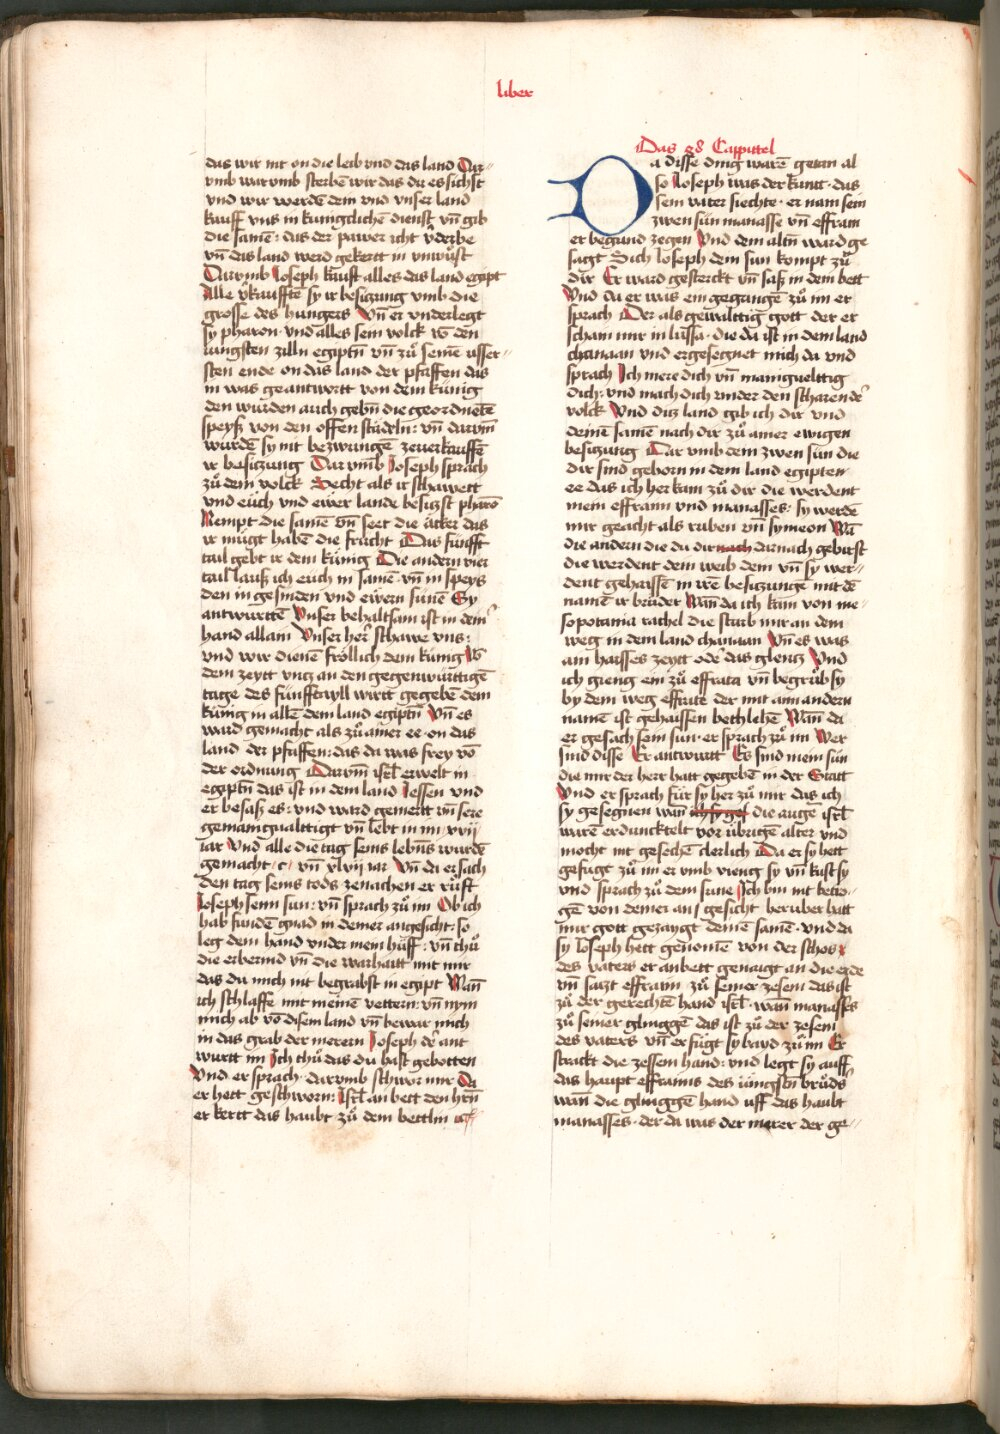 liber
das wir nit on die leib vnd das land Dar-
vmb warvmb sterbē wir das du es sichst
vnd wir werdē dein vnd vnser land
kauff vns in kunigclichē dienst vn̄ gib
die samē : das der pawer icht v̓derbe
vn̄ das land werd gekertt in vnwůst
Darvmb Joseph kaufft alles das land egipt
Alle v̓kaufftē sy ir besiczung vmb die
grosse des hungers Vn̄ er vnderlegt
sy pharon · vnd alles sein volck vō den
iungsten zilln egiptn̄ vn̄ zů seinē usser-
sten ende on das land der pfaffen das
in was geantwortt von dem kúnig
den wurden auch gebn̄ die geordnetē
speyß von den offen städeln : vn̄ darvm̄
wurdē sy nit bezwungē zeuerkauffē
ir besiczung Darvmb Joseph sprach
zů dem volck Secht als ir schawett
vnd eůch vnd ewer lande besiczt pharo
Nempt die samē vn̄ seet die äcker das
ir můgt habē die frucht Das fünfft
tail gebt ir dem kúnig Die andern vier
tail lauß ich euch in samē vn̄ in speys
den in gesinden vnd ewern sunē Sy
antwurttē Vnser behaltsam ist in deinr̓
hand allain Vnser her̓ schawe vns :
vnd wir dienē frölich dem kúnig Vō
dem zeytt vncz an den gegenwürttigē
tage des fúnfftayll wirtt gegebē dem
kúnig in allē dem land egiptn̄ Vn̄ es
ward gemacht als zů ainer ee · on das
land der pfaffen : das da was frey vō
der ordnung Darvm̄ isrl̄ erwelt in
egiptn̄ das ist in dem land Jessen vnd
er besaß es : vnd ward gemertt vn̄ sere
gemanigualttigt vn̄ lebt in im · xvij
iar Vnd alle die tag seins lebns wurdē
gemacht · c · vn̄ xlvij iar Vn̄ da er sach
den tag seins tods zenachen er rüfft
Joseph seim sun : vn̄ sprach zů im Ob ich
hab fundē gnad in deiner angesicht : so
leg dein hand vnder mein hüff : vn̄ thů
die erbermd vn̄ die warhaitt mit mir
das du mich nit begrabst in egipt Wan̄
ich schlaffe mit meinē vettern : vn̄ nym
mich ab vō disem land vn̄ bewar mich
in das grab der merern Joseph dē ant
wurtt im Ich thů das du hast gebotten
Vnd er sprach · darvmb schwer mir Da
er hett geschworn : Isrl̄ an bett den hrn̄
er kertt das haubt zů dem bettlin
Das 48 Cappittel
Da disse ding warē getan al
so Joseph was der kunt · das
sein vater siechte · er nam sein
zwen sün manasse vn̄ effraim
er begund zegen Vnd dem altn̄ ward ge
sagt Sich Joseph dein sun kompt zů
dir Er ward gesterckt vn̄ saß in dem bett
Vnd da er was ein gegangē zů im er
sprach Der als gewalttig gott der er
scham mir in lussa · die da ist in dem land
chanaan vnd er gesegnet mich da vnd
sprach Ich mere dich vn̄ maniguelttig
dich : vnd mach dich vnder den scharen de̓
volck Vnd dicz land gib ich dir vnd
deinē samē nach dir zů ainer ewigen
besiczung Dar vmb dein zwen sün die
dir sind geborn in dem land egipten
ee das ich her kam zů dir die werdent
mein effraim vnd manasses : sy werdē
mir geacht als ruben vn̄ symeon Wā
die andern die du dir nach darnach gebirst
die werdent dein weib dem vn̄ sy wer-
dent gehaissē in irē besiczungē mit dē
namē ir brůder Wan̄ da ich kam von me-
sopotania rachel die starb mir an dem
weg in dem land chanaan Vn̄ es was
am haisses zeytt ode̓ das glencz Vnd
ich gieng ein zů effrata vn̄ begrůb sy
by dem weg effrate der mit aim andern
namē ist gehaissen bethlehē Wan̄ da
er gesach sein sun · er sprach zů im Wer
sind disse Er antwurtt Es sind mein sün
die mir der herr hatt gegebē in der Statt
Vnd er sprach Für sy her zů mir das ich
sy gesegnen wan̄ die augē isrl̄
warē erduncktelt vor übrigē alter vnd
mocht nit gesechē clerlich Da er sy hett
gefügt zů im er vmb vieng sy vn̄ kust sy
vnd sprach zů dem sune Ich bin nit betro-
gē von deiner an / gesicht herüber hatt
mir gott gezaygt deinē samē · vnd da
sy Joseph hett genomē von der schos
des vaters er anbett genaigt an die erde
vn̄ saczt effraim zů seiner zesem das ist
zů der gerechtē hand isrl̄ · wan̄ manasses
zů seiner glinggē das ist zů der zesem
des vaters vn̄ er fügt sy bayd zů im Er
strackt die zessem hand : vnd legt sy auff
das haupt effraims des iüngstn̄ brůds̓
wan̄ die glinggē hand uff das haubt
manasses · der da was der merer der ge-